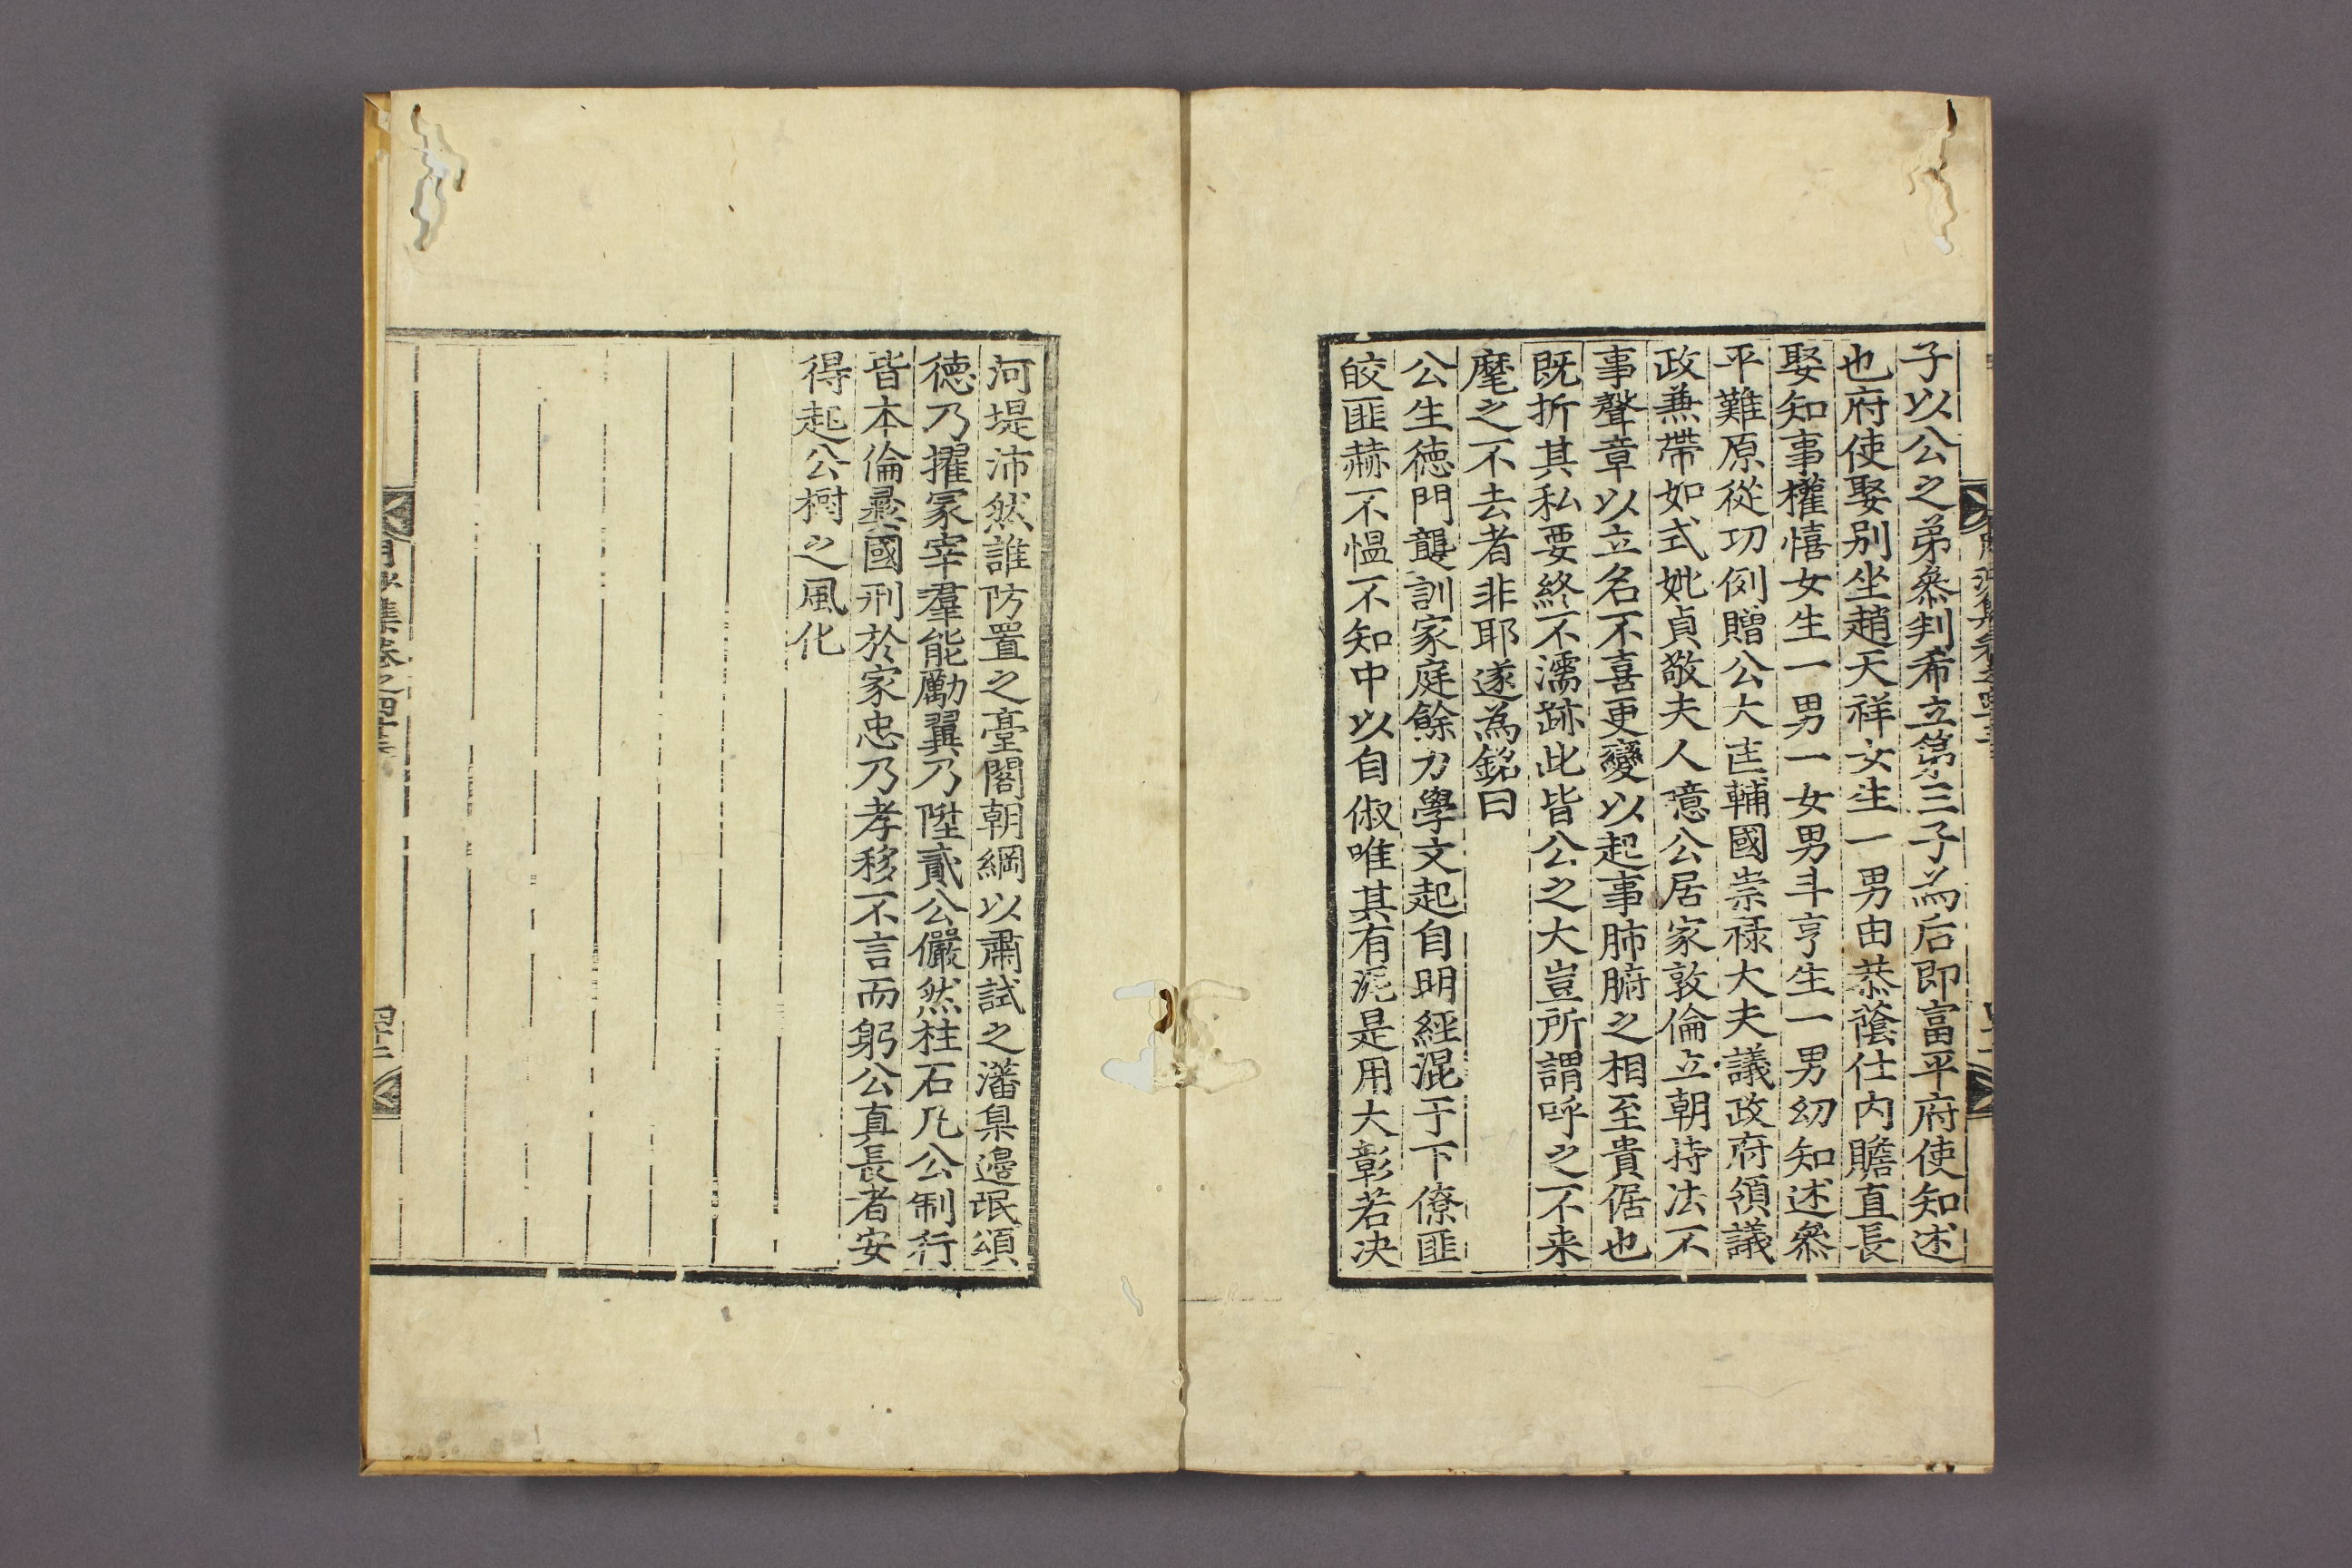 子以公之弟叅判希立第三子為后即富平府使知述
也府使娶别坐趙天祥女生一男由恭蔭仕内贍直長
娶知事權憘女生一男一女男斗亨生一男幼知述叅
平難原從功例贈公大匡輔國崇祿大夫議政府領議
政兼帶如式妣貞敬夫人噫公居家敦倫立朝持法不
事聲章以立名不喜更變以起事肺腑之相至貴倨也
既折其私要終不濡跡此皆公之大豈所謂呼之不来
麾之不去者非耶遂為銘曰
公生徳門襲訓家庭餘力學文起自明經混于下僚匪
皎匪赫不慍不知中以自俶唯其有泥是用大彰若决
河堤沛然誰防置之臺閣朝綱以肅試之藩臬邉氓頌
徳乃擢冢宰羣能勵翼乃陞貳公儼然柱石凡公制行
皆本倫彝國刑於家忠乃孝移不言而躬公真長者安
得起公樹之風化
月沙集卷之四十五
四十二